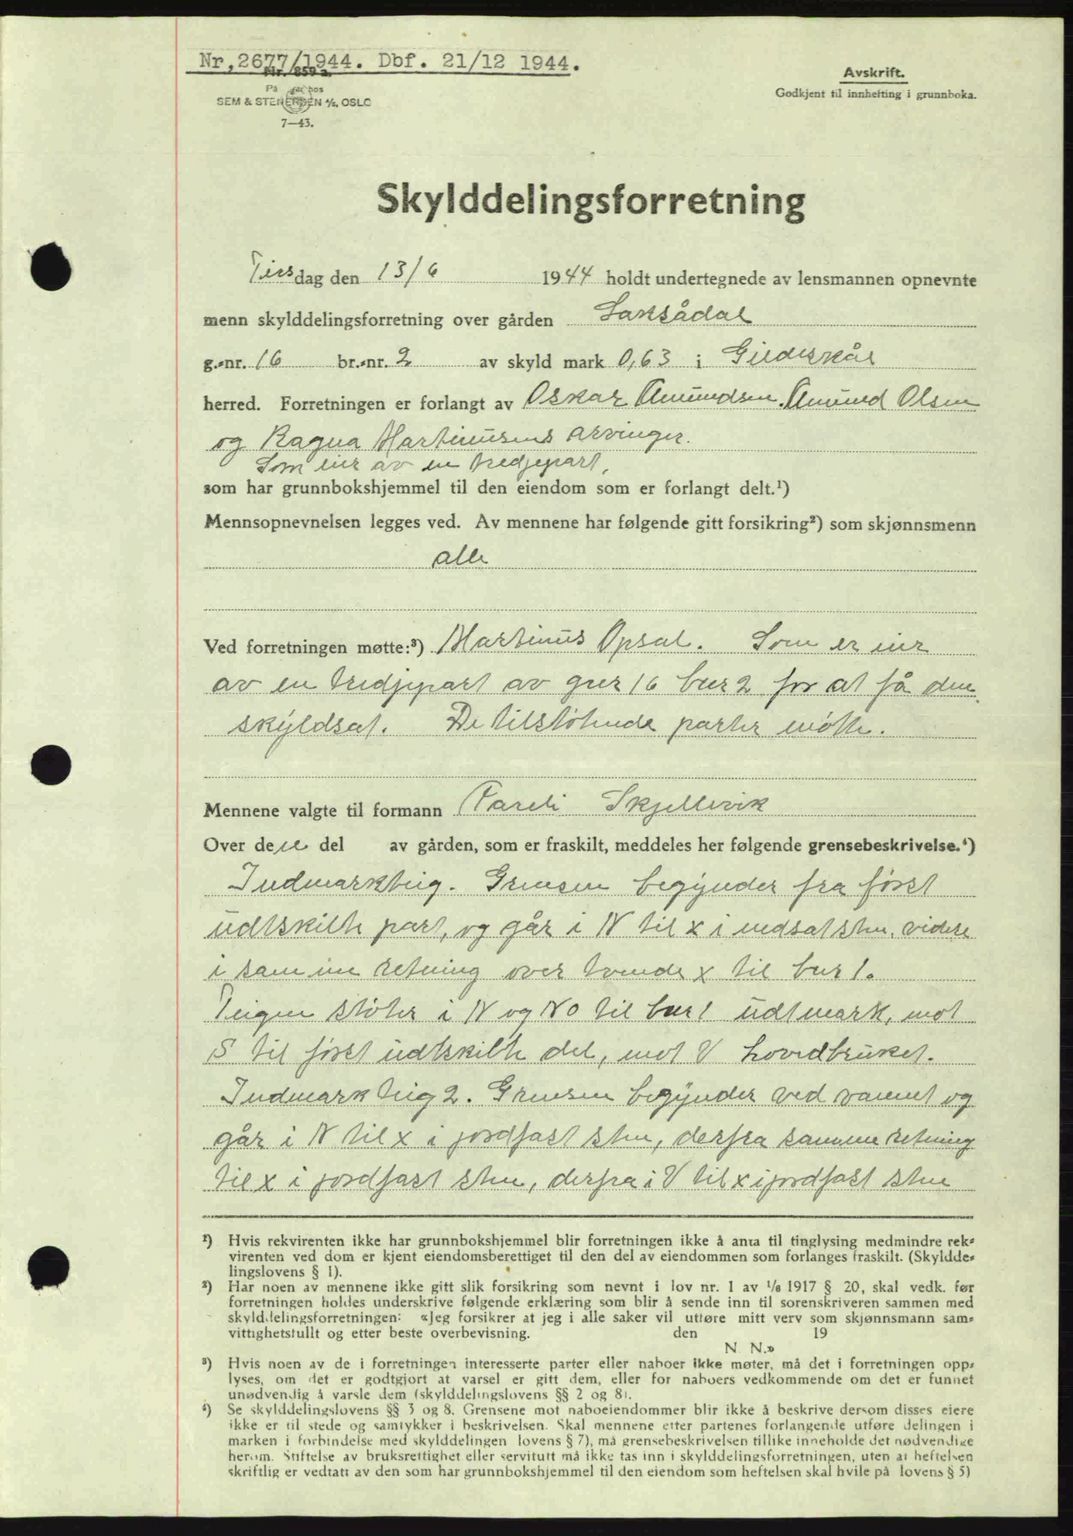 Nr, 2677/1944. Dbf. 21/12 1944.
Nr. 859 a.
På hos
SEM & STENERSEN A/S, OSLO
7—43.
Avskrift.
Godkjent til innhefting i grunnboka.
Skylddelingsforretning
Tirsdag den 13/6 1944 holdt undertegnede av lensmannen opnevnte
menn skylddelingsforretning over gården Saksådal
g.-nr. 16 br.-nr. 2 av skyld mark 0,63 i Gildeskål
herred. Forretningen er forlangt av Oskar Amundsen. Amund Olsen
og Ragna Martinusens arvinger.
Som eier av en tredjepart,
som har grunnbokshjemmel til den eiendom som er forlangt delt.¹)
Mennsopnevnelsen legges ved. Av mennene har følgende gitt forsikring²) som skjønnsmenn
alle
Ved forretningen møtte:³) Martinus Opsal. Som er eier
av en tredjepart av gnr 16 bnr 2 for at få den
skyldsat. De tilstøtende parter møtte.
Mennene valgte til formann Pareli Skjellvik
Over den del av gården, som er fraskilt, meddeles her følgende grensebeskrivelse.⁴)
Indmarkteig. Grensen begynder fra først
udtskilte part, og går i N til x i nedsat sten, videre
i samme retning over tvende x til bnr 1.
Teigen støter i N og NO til bnr 1 udtmark, mot
S til først udtskilte del, mot V hovedbruket.
Indmark teig 2. Grensen begynder ved vannet og
går i N til x i jordfast sten, derfra samme retning
til x i jordfast sten, derfra i V til x i jordfast sten
¹) Hvis rekvirenten ikke har grunnbokshjemmel blir forretningen ikke å anta til tinglysing medmindre rek-
virenten ved dom er kjent eiendomsberettiget til den del av eiendommen som forlanges fraskilt. (Skyldde-
lingslovens § 1).
²) Har noen av mennene ikke gitt slik forsikring som nevnt i lov nr. 1 av 1/8 1917 § 20, skal vedk. før
forretningen holdes underskrive følgende erklæring som blir å sende inn til sorenskriveren sammen med
skylddelingsforretningen: «Jeg forsikrer at jeg i alle saker vil utføre mitt verv som skjønnsmann sam-
vittighetsfullt og etter beste overbevisning. den 19
N. N.»
³) Hvis noen av de i forretningen interesserte parter eller naboer ikke møter, må det i forretningen opp-
lyses, om det er godtgjort at varsel er gitt dem, eller for naboers vedkommende om det er funnet
unødvendig å varsle dem (skylddelingslovens §§ 2 og 8).
⁴) Se skylddelingslovens §§ 3 og 8. Grensene mot naboeiendommer blir ikke å beskrive dersom disses eiere
ikke er til stede og samtykker i beskrivelsen. Skal mennene etter partenes forlangende utføre delingen i
marken i forbindelse med skylddelingen (lovens § 7), må grensebeskrivelsen tillike inneholde det nødvendige
herom. Stiftelse av bruksrettighet eller servitutt må ikke tas inn i skylddelingsforretningen, uten at heftelsen
skriftlig er vedtatt av den som har grunnbokshjemmel til den eiendom som heftelsen skal hvile på (lovens § 5)